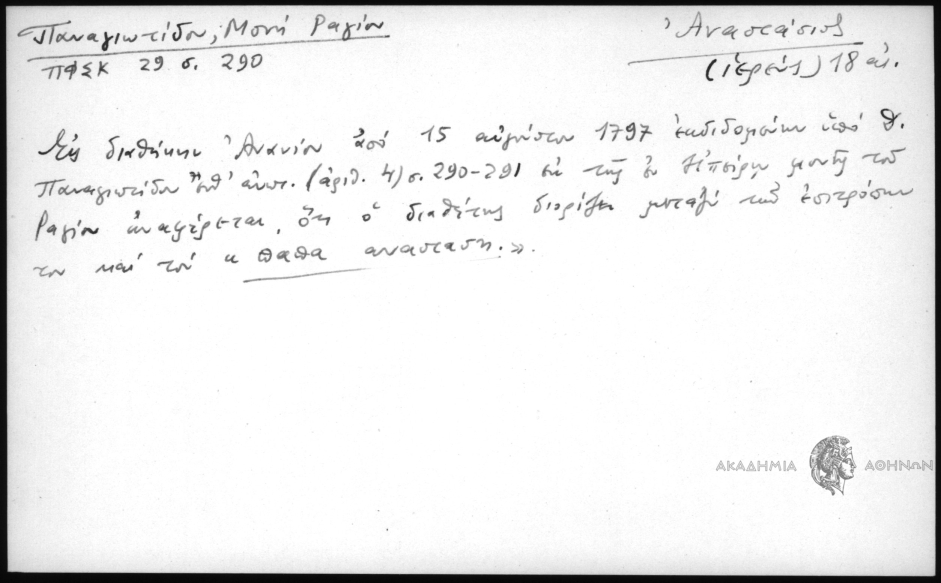 Παναγιωτίδου, Μονή Ραγίου
ΠΦΣΚ 29 σ. 290
Ἀναστάσιος
(ἱερεύς) 18 αἰ.
Εἰς διαθήκην Ἀνανίου ἀπό 15 αὐγούστου 1797 ἐκδιδομένην ὑπό Θ.
Παναγιωτίδου ἔνθ' ἀνωτ. (ἀριθ. 4) σ. 290-291 ἐκ τῆς ἐν Ἠπείρῳ μονῆς τοῦ
Ραγίου ἀναφέρεται, ὅτι ὁ διαθέτης διορίζει μεταξύ τῶν ἐπιτρόπων
του καί τόν « παπα αναστασι. ».
ΑΚΑΔΗΜΙΑ ΑΘΗΝΩΝ